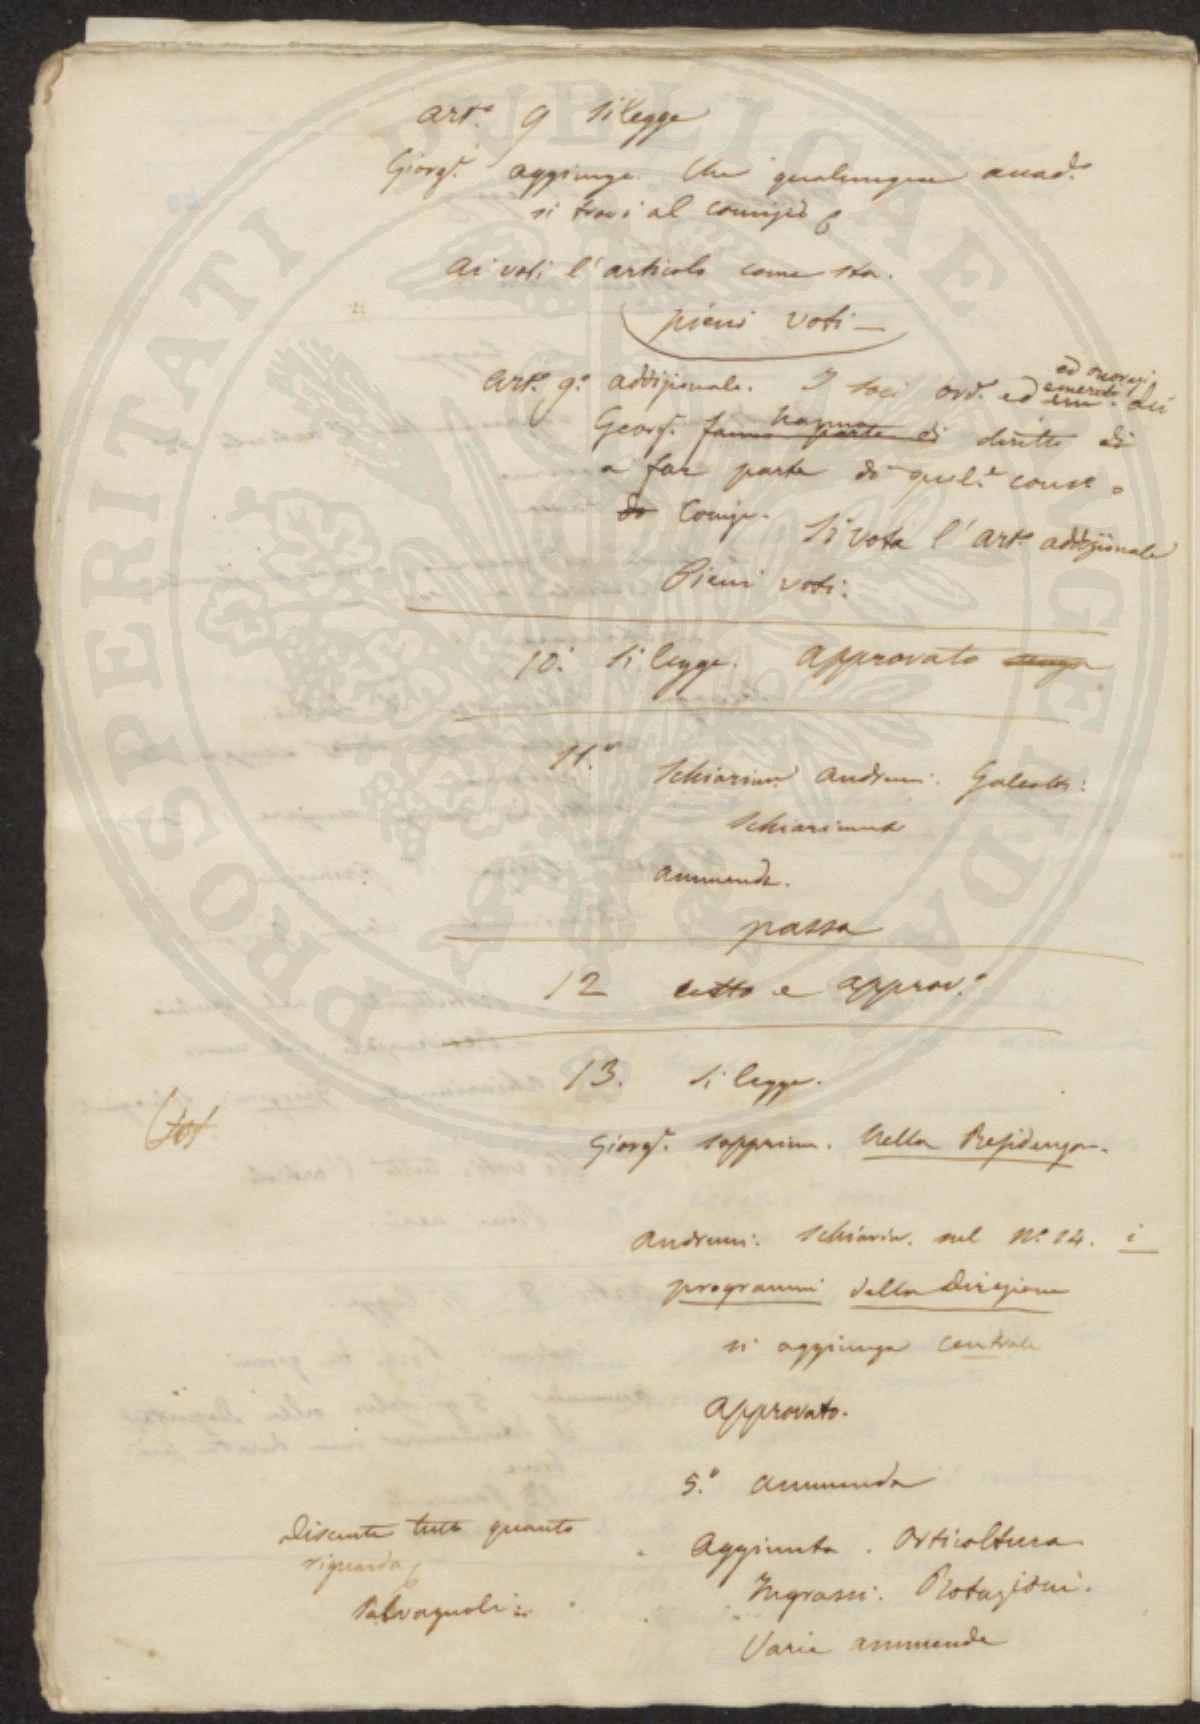 Art.° 9 si legge
Giorg.i aggiunge. Che qualunque accad.
si trovi al comizio
Ai voti l'articolo come sta.
pieni voti —
Art.° 9.° addizionale. I soci ord. ed emeriti ed onorarj dei
Georg. fanno parte di hanno diritto di
a far parte di quel.
do Comiz. Si vota l'art.° addizionale
Pieni voti.
10.° si legge. Approvato senza
11.° Schiarim. Andreucci. Galeotti:
Schiarimenti
ammenda.
passa
12 letto e approv.°
13. si legge.
Giorg.i sopprim. Nella Residenza.
Andreucci. Schiarim. nel N.° 14. i
programmi della Direzione
si aggiunga centrale
Approvato.
5.° ammenda
Discute tutto quanto
riguarda
Salvagnoli:
Aggiunta. Orticoltura
Ingrassi. Rotazioni.
Varie ammende
PROSPERITATI PUBLICAE AUGENDAE